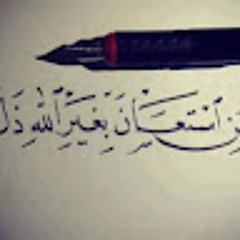 مَن اسْتَعَانَ بِغَيْرِ اللهِ ذَلَّ